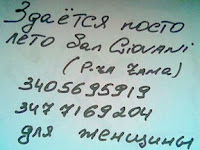 Здаётся посто
лето San Giovani
(P.za Zama)
3405695919
3477169204
для женщины